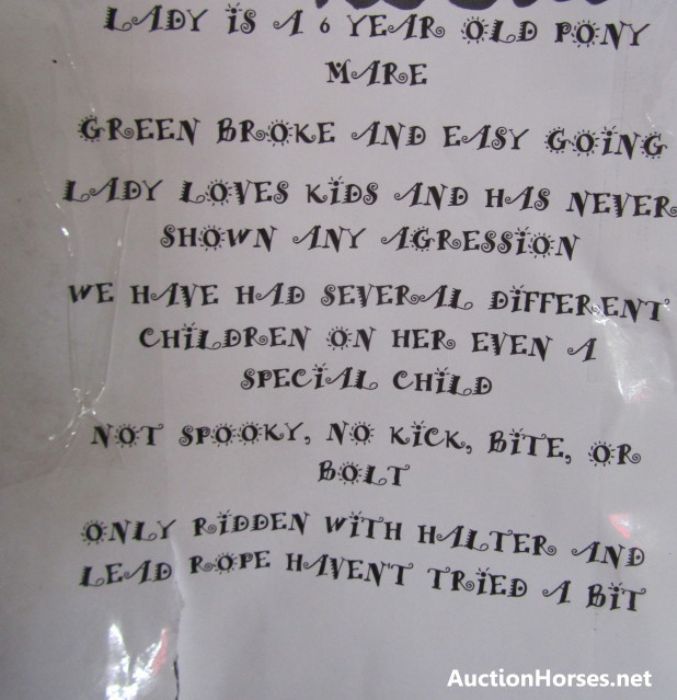 LADY IS A 6 YEAR OLD PONY
MARE
GREEN BROKE AND EASY GOING
LADY LOVES KIDS AND HAS NEVER
SHOWN ANY AGRESSION
WE HAVE HAD SEVERAL DIFFERENT
CHILDREN ON HER EVEN A
SPECIAL CHILD
NOT SPOOKY, NO KICK, BITE, OR
BOLT
ONLY RIDDEN WITH HALTER AND
LEAD ROPE HAVEN'T TRIED A BIT
AuctionHorses.net